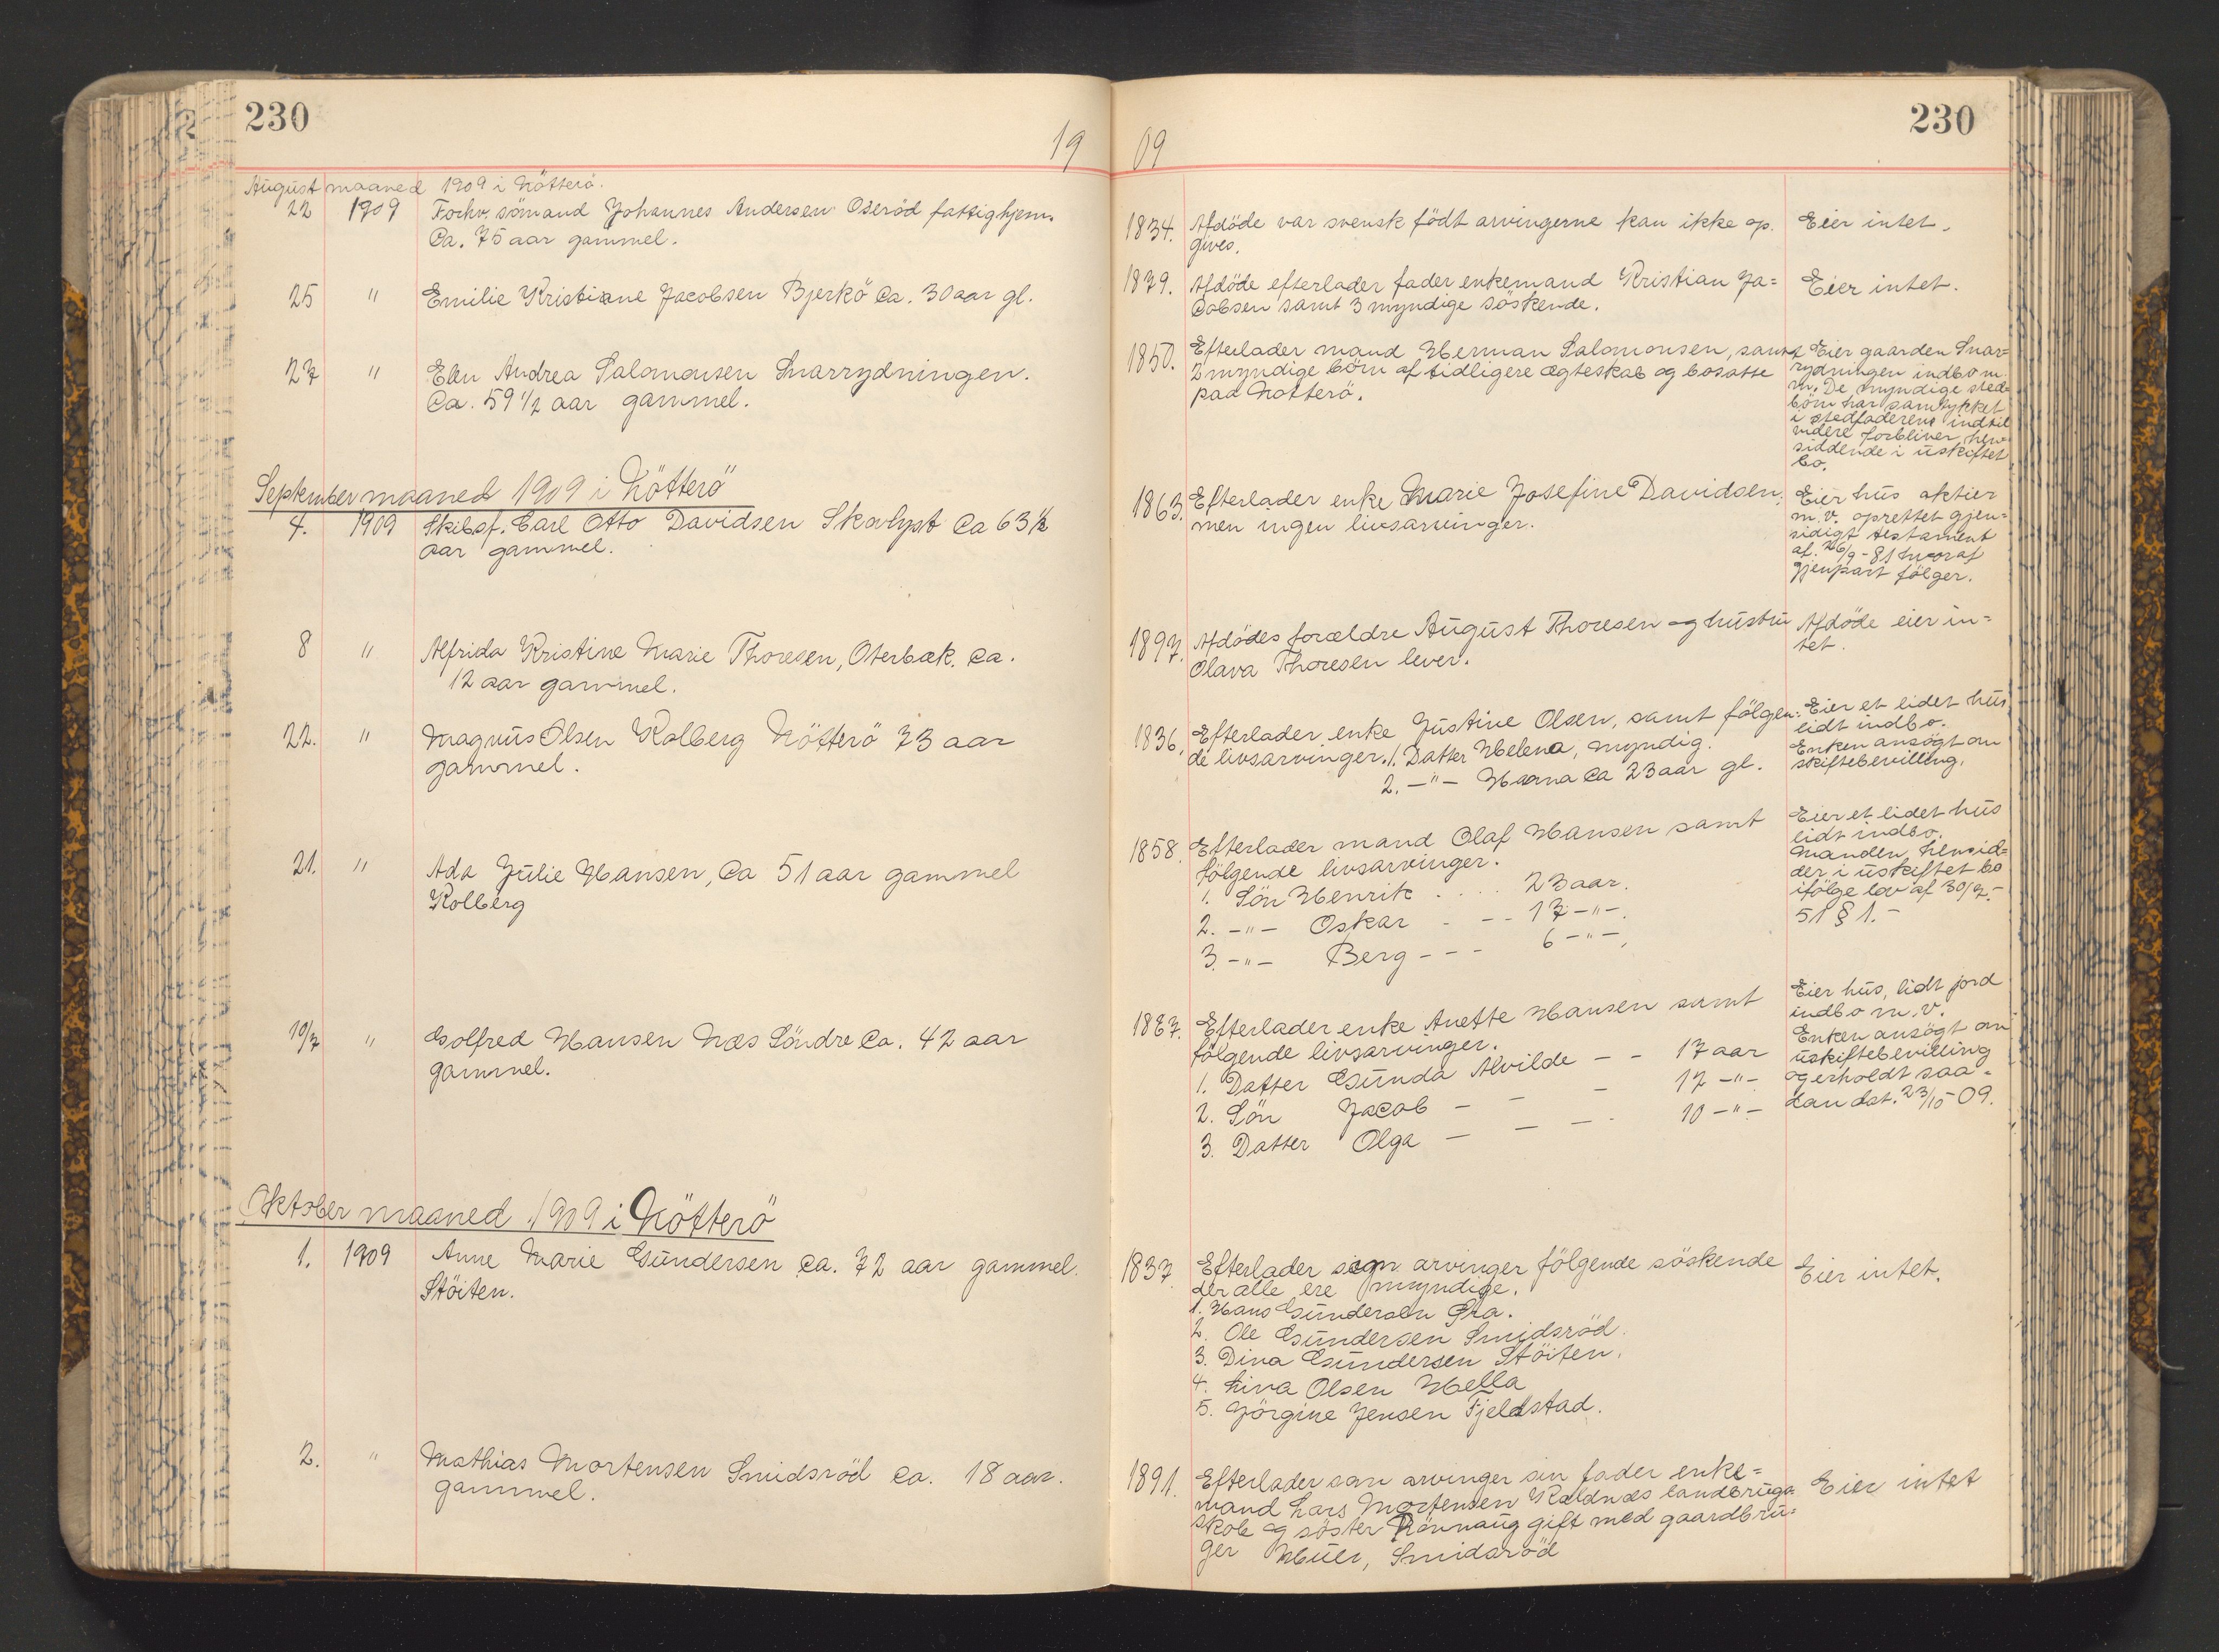 230
19
August maaned 1909 i Nötterö.
22 1909 Forhv. sömand Johannes Andersen Oseröd fattighjem.
Ca. 75 aar gammel.
25 " Emilie Kristiane Jacobsen Bjerkö Ca. 30 aar gl.
27 " Elen Andrea Salomonsen Snarrydningen.
Ca. 59 1/2 aar gammel.
September maaned 1909 i Nötterö
4. 1909 Skibsf. Carl Otto Davidsen Skovlyst Ca 63 1/2
aar gammel.
8 " Alfrida Kristine Marie Thoresen, Oterbæk, Ca.
12 aar gammel.
22. " Magnus Olsen Kolberg Nötterö 73 aar
gammel.
21. " Ada Julie Hansen, Ca 51 aar gammel
Kolberg
19/7 " Golfred Hansen Næs Söndre Ca. 42 aar
gammel.
Oktober maaned 1909 i Nötterö
1. 1909 Anne Marie Gundersen Ca. 72 aar gammel.
Stöiten.
2. " Mathias Mortensen Smidsröd Ca. 18 aar.
gammel.
230
09
1834. Afdöde var svensk födt arvingerne kan ikke op-
gives.
Eier intet.
1879. Afdöde efterlader fader enkemand Kristian Ja=
Cobsen samt 3 myndige söskende.
Eier intet.
1850. Efterlader mand Herman Salomonsen, samt
2 myndige börn af tidligere ægteskab og bosatte
paa Nötterö.
Eier gaarden Snar=
rydningen indbo m.
m. De myndige sted=
börn har samtykket
i stedfaderens indtil
videre forbliver hen=
siddende i uskiftet
bo.
1863. Efterlader enke Marie Josefine Davidsen,
men ingen livsarvinger.
Eier hus aktier
m. v. oprettet gjen=
sidigt testament
af. 26/9-81 hvoraf
gjenpart fölger.
1897. Afdödes forældre August Thoresen og hustru
Olava Thoresen lever.
Afdöde eier in=
tet.
1836. Efterlader enke Justine Olsen, samt fölgen=
de livsarvinger. 1. Datter Helena, myndig.
2. -"- Hanna Ca 23 aar gl.
Eier et lidet hus
lidt indbo.
Enken ansögt om
skiftebevilling.
1858. Efterlader mand Olaf Hansen samt
fölgende livsarvinger.
1. Sön Henrik . . . . 23 aar.
2. -"- Oskar - - - 17 -"-.
3. -"- Berg - - - 6 -"-.
Eier et lidet hus
lidt indbo.
Manden hensid=
der i uskiftet bo
ifölge lov af 30/7.-
51 § 1.-
1867. Efterlader enke Anette Hansen samt
fölgende livsarvinger.
1. Datter Gunda Alvilde - - 17 aar
2. Sön Jacob - - - 12 -"-
3. Datter Olga - - - 10 -"-
Eier hus, lidt jord
indbo m. v.
Enken ansögt om
uskiftebevilling
og erholdt saa=
dan dat. 23/10-09.
1837 Efterlader som arvinger fölgende söskende
der alle ere myndige.
1. Hans Gundersen Øra.
2. Ole Gundersen Smidsröd.
3. Dina Gundersen Stöiten.
4. Lina Olsen Hella
5. Jörgine Jensen Fjeldstad.
Eier intet.
1891. Efterlader som arvinger sin fader enke=
mand Lars Mortensen Kaldnæs landbrugs
skole og söster Rönnaug gift med gaardbru=
ger Smidsröd
Eier intet